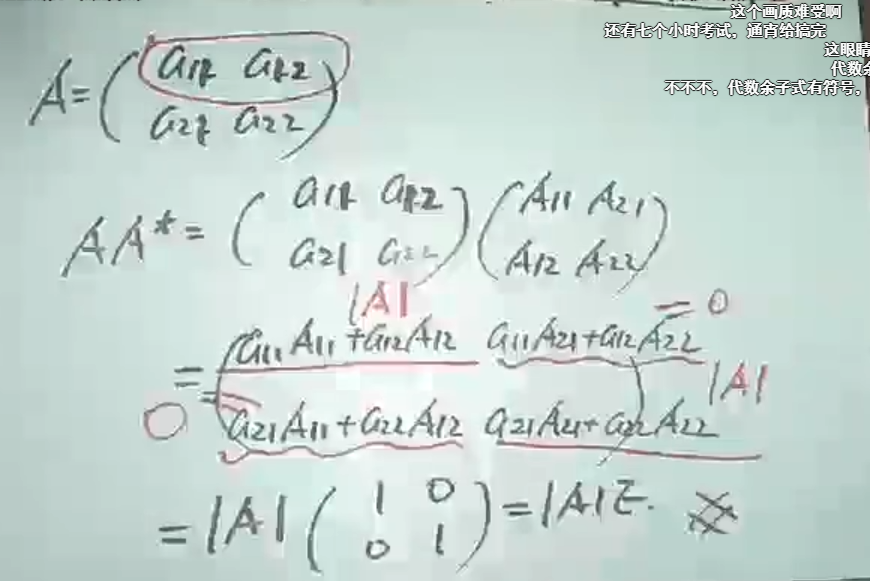 这个画质难受啊
还有七个小时考试，通宵给搞完
这眼睛
代数余
不不不，代数余子式有符号，
A = ( a11 a12
a21 a22 )
AA* = ( a11 a12
a21 a22 ) ( A11 A21
A12 A22 )
|A| = 0
= ( a11A11+a12A12 a11A21+a12A22
|A|
0 = a21A11+a22A12 a21A21+a22A22 )
= |A| ( 1 0
0 1 ) = |A|E.